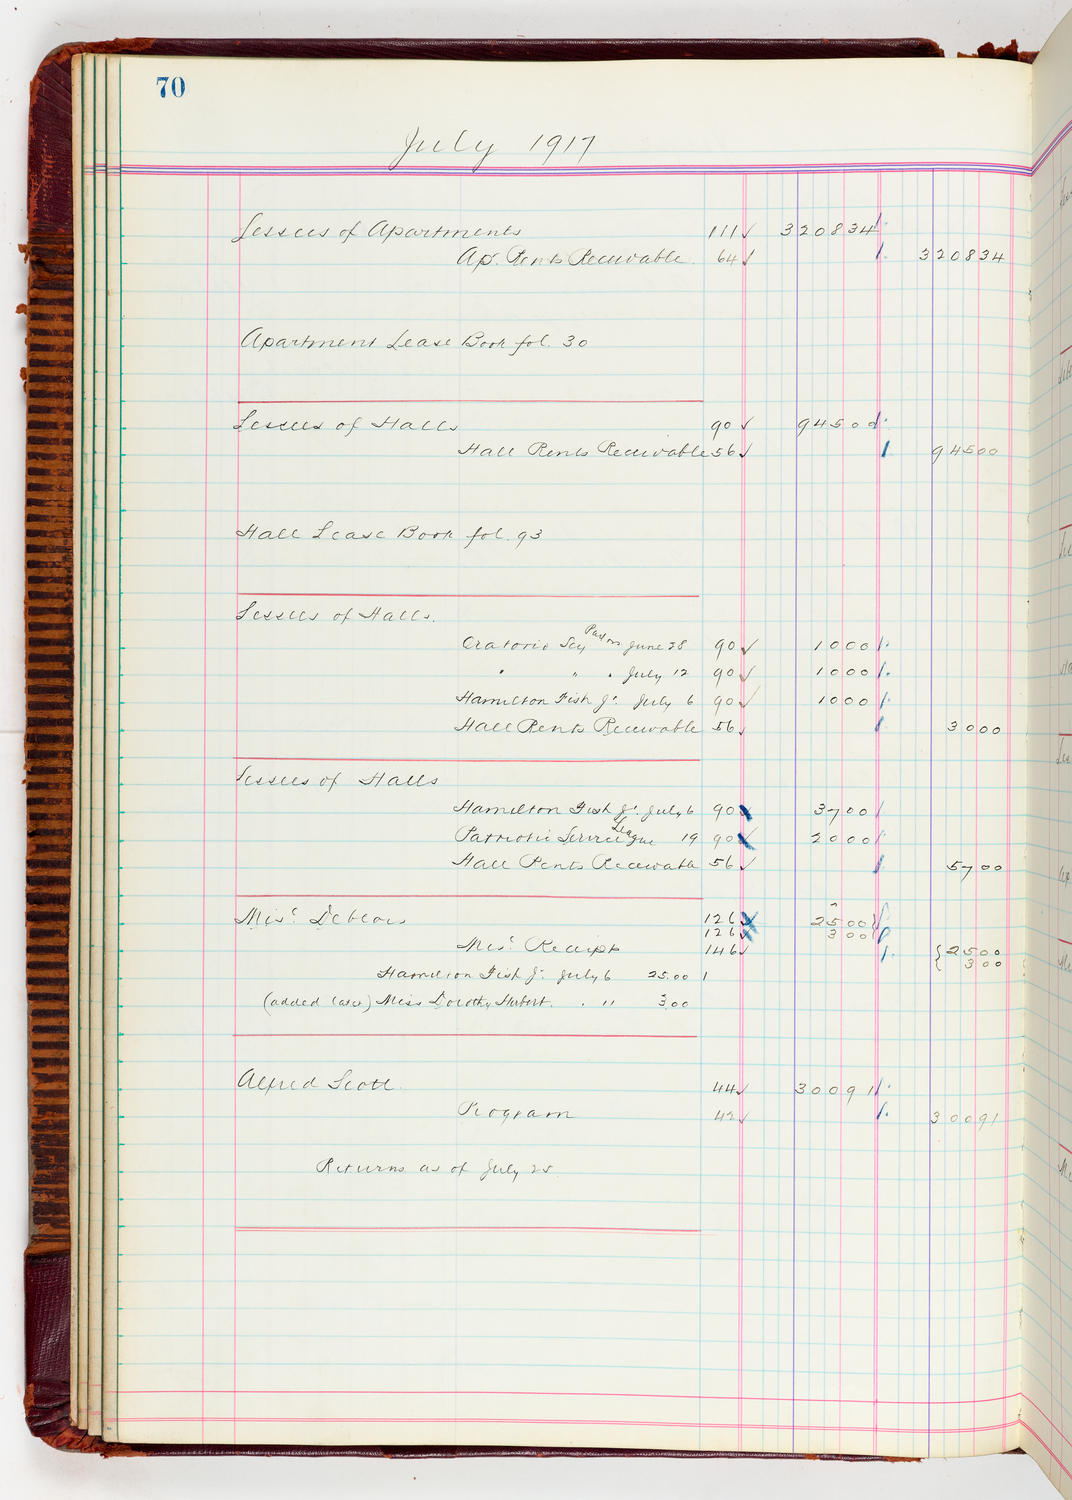 70
July 1917
Lessees of Apartments 111 ✓ 3208 34
Ap. Rents Receivable 64 ✓ 3208 34
Apartment Lease Book fol. 30
Lessees of Halls 90 ✓ 945 00
Hall Rents Receivable 56 ✓ 945 00
Hall Lease Book fol. 93
Lessees of Halls.
Oratorio Socy June 28 90 ✓ 10 00
" " " July 12 90 ✓ 10 00
Hamilton Fish Jr. July 6 90 ✓ 10 00
Hall Rents Receivable 56 ✓ 30 00
Lessees of Halls
Hamilton Fish Jr. July 6 90 ✓ 37 00
Patriotic Service League 19 90 ✓ 20 00
Hall Rents Receivable 56 ✓ 57 00
Misc. Debtors 126 ✓ 25 00
126 ✓ 3 00
Misc. Receipts 146 ✓ 25 00
3 00
Hamilton Fish Jr. July 6 25.00
(added later) Miss Dorothy Hubert. " " 3.00
Alfred Scott 44 ✓ 300 91
Program 42 ✓ 300 91
Returns as of July 25